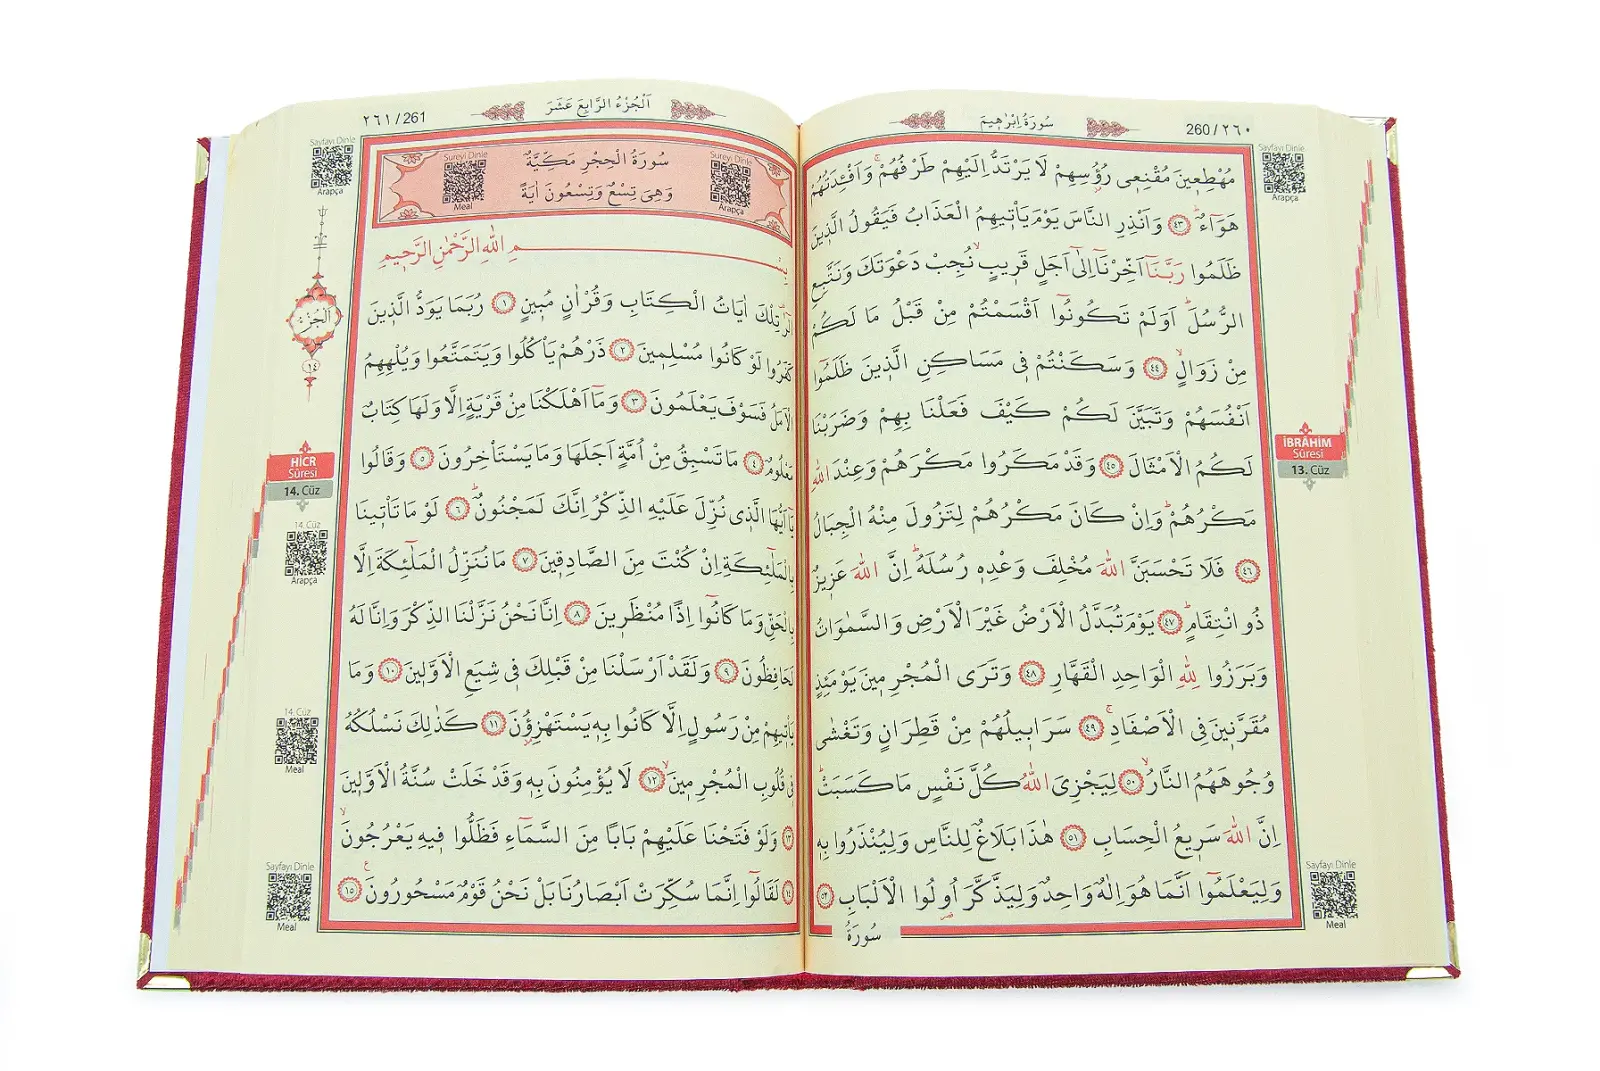 سُورَةُ اِبْرٰه۪يمَ
260/٢٦٠
Sayfayı Dinle
Arapça
مُهْطِع۪ينَ مُقْنِع۪ى رُؤُسِهِمْ لَا يَرْتَدُّ اِلَيْهِمْ طَرْفُهُمْۚ وَاَفْـِٔدَتُهُمْ
هَوَٓاءٌۜ ٤٣ وَاَنْذِرِ النَّاسَ يَوْمَ يَأْت۪يهِمُ الْعَذَابُ فَيَقُولُ الَّذ۪ينَ
ظَلَمُوا رَبَّنَٓا اَخِّرْنَٓا اِلٰٓى اَجَلٍ قَر۪يبٍۙ نُجِبْ دَعْوَتَكَ وَنَتَّبِعِ
الرُّسُلَۜ اَوَلَمْ تَكُونُٓوا اَقْسَمْتُمْ مِنْ قَبْلُ مَا لَكُمْ
مِنْ زَوَالٍۙ ٤٤ وَسَكَنْتُمْ ف۪ى مَسَاكِنِ الَّذ۪ينَ ظَلَمُٓوا
اَنْفُسَهُمْ وَتَبَيَّنَ لَكُمْ كَيْفَ فَعَلْنَا بِهِمْ وَضَرَبْنَا
لَكُمُ الْاَمْثَالَ ٤٥ وَقَدْ مَكَرُوا مَكْرَهُمْ وَعِنْدَ اللّٰهِ
مَكْرُهُمْۜ وَاِنْ كَانَ مَكْرُهُمْ لِتَزُولَ مِنْهُ الْجِبَالُ
٤٦ فَلَا تَحْسَبَنَّ اللّٰهَ مُخْلِفَ وَعْدِه۪ رُسُلَهُۜ اِنَّ اللّٰهَ عَز۪يزٌ
ذُو انْتِقَامٍۜ ٤٧ يَوْمَ تُبَدَّلُ الْاَرْضُ غَيْرَ الْاَرْضِ وَالسَّمٰوَاتُ
وَبَرَزُوا لِلّٰهِ الْوَاحِدِ الْقَهَّارِ ٤٨ وَتَرَى الْمُجْرِم۪ينَ يَوْمَئِذٍ
مُقَرَّن۪ينَ فِى الْاَصْفَادِۚ ٤٩ سَرَاب۪يلُهُمْ مِنْ قَطِرَانٍ وَتَغْشٰى
وُجُوهَهُمُ النَّارُۙ ٥٠ لِيَجْزِىَ اللّٰهُ كُلَّ نَفْسٍ مَا كَسَبَتْۜ
اِنَّ اللّٰهَ سَر۪يعُ الْحِسَابِ ٥١ هٰذَا بَلَاغٌ لِلنَّاسِ وَلِيُنْذَرُوا بِه۪
وَلِيَعْلَمُٓوا اَنَّمَا هُوَ اِلٰهٌ وَاحِدٌ وَلِيَذَّكَّرَ اُو۬لُوا الْاَلْبَابِ ٥٢
سُورَةُ
İBRÂHİM
Sûresi
13. Cüz
Sayfayı Dinle
Meal
٢٦١/261
اَلْجُزْءُ الرَّابِعَ عَشَرَ
Sayfayı Dinle
Arapça
Sureyi Dinle
Meal
Sureyi Dinle
Arapça
سُورَةُ الْحِجْرِ مَكِّيَّةٌ
وَهِىَ تِسْعٌ وَتِسْعُونَ اٰيَةً
بِسْمِ اللّٰهِ الرَّحْمٰنِ الرَّح۪يمِ
الٓرٰ۠ تِلْكَ اٰيَاتُ الْكِتَابِ وَقُرْاٰنٍ مُب۪ينٍ ١ رُبَمَا يَوَدُّ الَّذ۪ينَ
كَفَرُوا لَوْ كَانُوا مُسْلِم۪ينَ ٢ ذَرْهُمْ يَأْكُلُوا وَيَتَمَتَّعُوا وَيُلْهِهِمُ
الْاَمَلُ فَسَوْفَ يَعْلَمُونَ ٣ وَمَٓا اَهْلَكْنَا مِنْ قَرْيَةٍ اِلَّا وَلَهَا كِتَابٌ
مَعْلُومٌ ٤ مَا تَسْبِقُ مِنْ اُمَّةٍ اَجَلَهَا وَمَا يَسْتَأْخِرُونَ ٥ وَقَالُوا
يَٓا اَيُّهَا الَّذ۪ى نُزِّلَ عَلَيْهِ الذِّكْرُ اِنَّكَ لَمَجْنُونٌۜ ٦ لَوْ مَا تَأْت۪ينَا
بِالْمَلٰٓئِكَةِ اِنْ كُنْتَ مِنَ الصَّادِق۪ينَ ٧ مَا نُنَزِّلُ الْمَلٰٓئِكَةَ اِلَّا
بِالْحَقِّ وَمَا كَانُٓوا اِذًا مُنْظَر۪ينَ ٨ اِنَّا نَحْنُ نَزَّلْنَا الذِّكْرَ وَاِنَّا لَهُ
لَحَافِظُونَ ٩ وَلَقَدْ اَرْسَلْنَا مِنْ قَبْلِكَ ف۪ى شِيَعِ الْاَوَّل۪ينَ ١٠ وَمَا
يَأْت۪يهِمْ مِنْ رَسُولٍ اِلَّا كَانُوا بِه۪ يَسْتَهْزِؤُ۫نَ ١١ كَذٰلِكَ نَسْلُكُهُ
ف۪ى قُلُوبِ الْمُجْرِم۪ينَۙ ١٢ لَا يُؤْمِنُونَ بِه۪ وَقَدْ خَلَتْ سُنَّةُ الْاَوَّل۪ينَ
١٣ وَلَوْ فَتَحْنَا عَلَيْهِمْ بَابًا مِنَ السَّمَٓاءِ فَظَلُّوا ف۪يهِ يَعْرُجُونَۙ
١٤ لَقَالُٓوا اِنَّمَا سُكِّرَتْ اَبْصَارُنَا بَلْ نَحْنُ قَوْمٌ مَسْحُورُونَ۟ ١٥
اَلْجُزْءُ
١٤
HİCR
Sûresi
14. Cüz
14. Cüz
Arapça
14. Cüz
Meal
Sayfayı Dinle
Meal